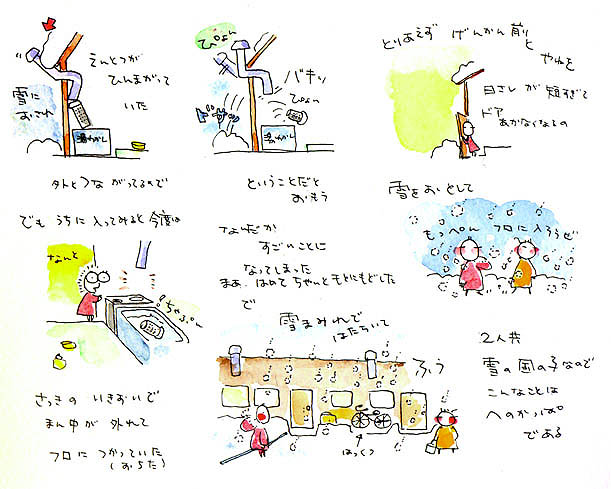 えんとつが
ひんまがって
いた
雪に
おされ
湯わかし
外とつながってるので
ぴょん
バキッ
ぴょん
湯わかし
ということだと
おもう
とりあえず げんかん前と
やねを
日さしが 短すぎて
ドア
あかなくなるの
雪をおとして
もっぺん フロに入ろうぜ
でも うちに入ってみると 今度は
なんと
ちゃぷーん
さっきの いきおいで
まん中が 外れて
フロに つかっていた
(おちた)
なんだか
すごいことに
なってしまった
まあ、はめて ちゃんともとにもどした
で
雪まみれで
はたらいて
ふう
はっくつ
2人共
雪の国の子なので
こんなことは
へのかっぱ
である